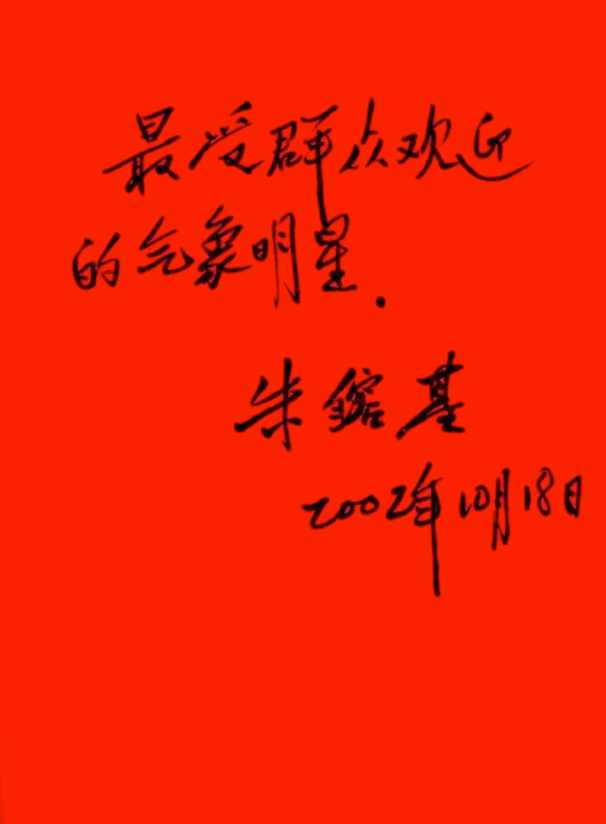 最受群众欢迎
的气象明星.
朱鎔基
2002年10月18日